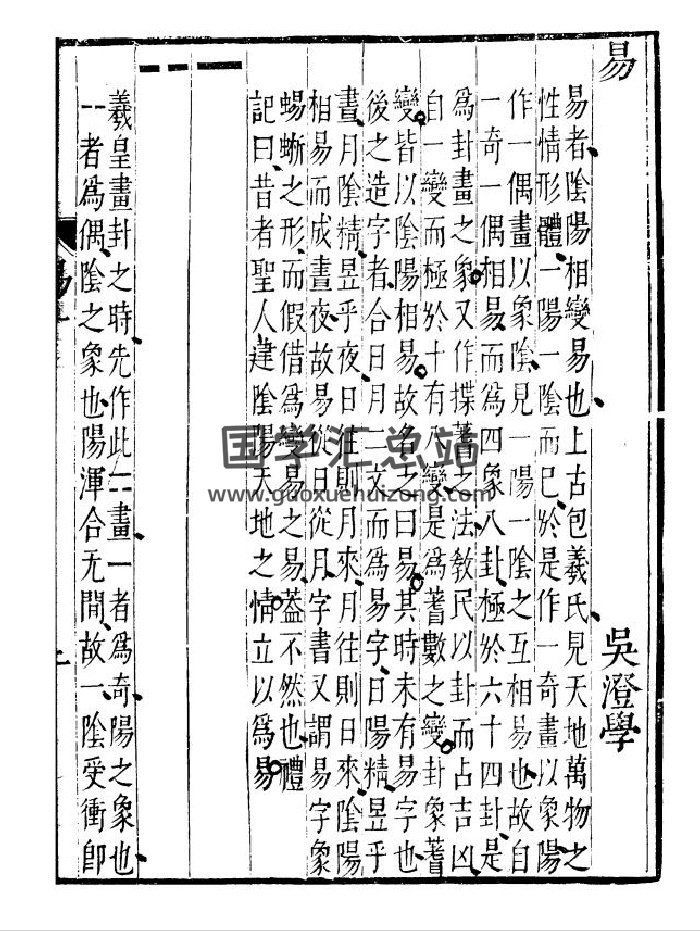 易
吳澄學
易者陰陽相變易也上古包羲氏見天地萬物之
性情形體一陽一陰而已於是作一奇畫以象陽
作一偶畫以象陰見一陽一陰之互相易也故自
一奇一偶相易而為四象八卦極於六十四卦是
為卦畫之象又作揲蓍之法教民以卦而占吉凶
自一變而極於十有八變是為蓍數之變卦象蓍
變皆以陰陽相易故名之曰易其時未有易字也
後之造字者合日月二文而為易字日陽精昱乎
晝月陰精昱乎夜日往則月來月往則日來陰陽
相易而成晝夜故易從日從月字書又謂易字象
蜴蜥之形而假借為變易之易葢不然也禮
記曰昔者聖人建陰陽天地之情立以為易
羲皇畫卦之時先作此二畫一者為奇陽之象也
--者為偶陰之象也陽渾合无間故一陰受衝卽
国学汇总站
www.guoxuehuizong.com